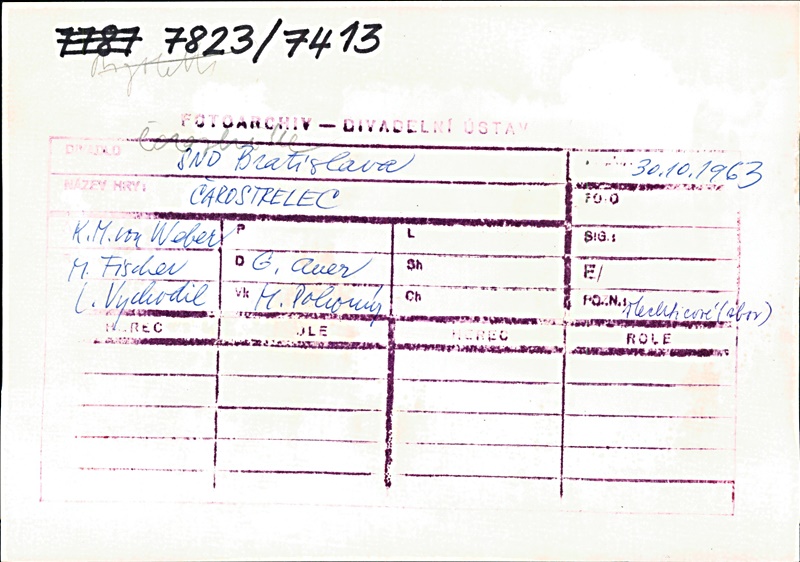 7787 7823/7413
FOTOARCHIV – DIVADELNÍ ÚSTAV
DIVADLO SND Bratislava 30.10.1963
NÁZEV HRY: ČAROSTRELEC FOTO
K.M. von Weber P L SIG.:
M. Fischer D G. Auer Sh E/
L. Vychodil Vk M. Pokorný Ch POZN.: (zbor)
HEREC ROLE HEREC ROLE